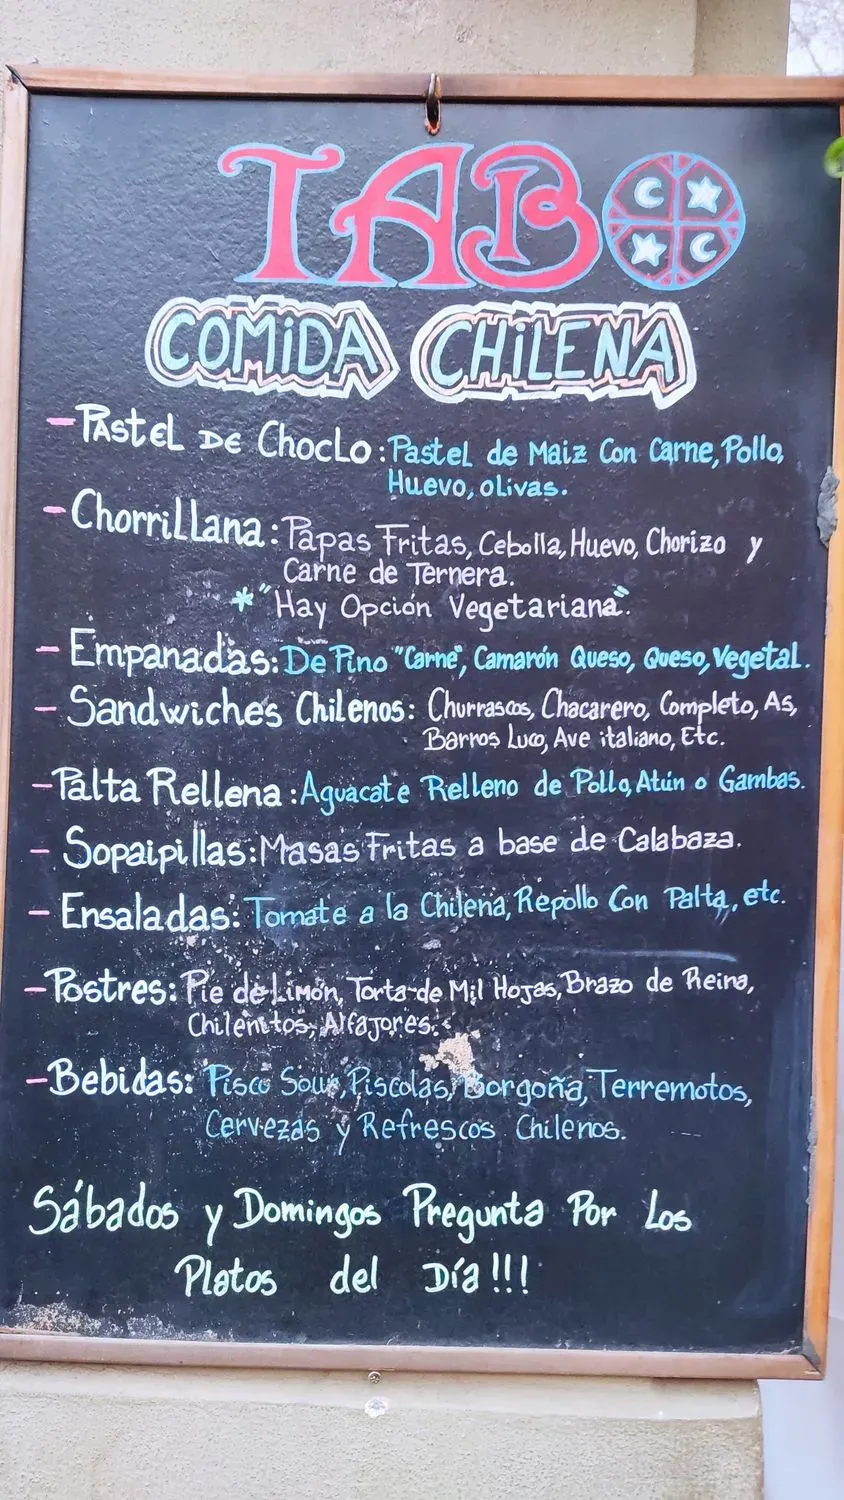 TABO
COMIDA CHILENA
- Pastel de Choclo: Pastel de Maiz Con Carne, Pollo,
Huevo, olivas.
- Chorrillana: Papas Fritas, Cebolla, Huevo, Chorizo y
Carne de Ternera.
* "Hay Opción Vegetariana".
- Empanadas: De Pino "Carne", Camarón Queso, Queso, Vegetal.
- Sandwiches Chilenos: Churrascos, Chacarero, Completo, As,
Barros Luco, Ave italiano, Etc.
- Palta Rellena: Aguacate Relleno de Pollo, Atún o Gambas.
- Sopaipillas: Masas Fritas a base de Calabaza.
- Ensaladas: Tomate a la Chilena, Repollo Con Palta, etc.
- Postres: Pie de Limón, Torta de Mil Hojas, Brazo de Reina,
Chilenitos, Alfajores.
- Bebidas: Pisco Sour, Piscolas, Borgoña, Terremotos,
Cervezas y Refrescos Chilenos.
Sábados y Domingos Pregunta Por Los
Platos del Día!!!